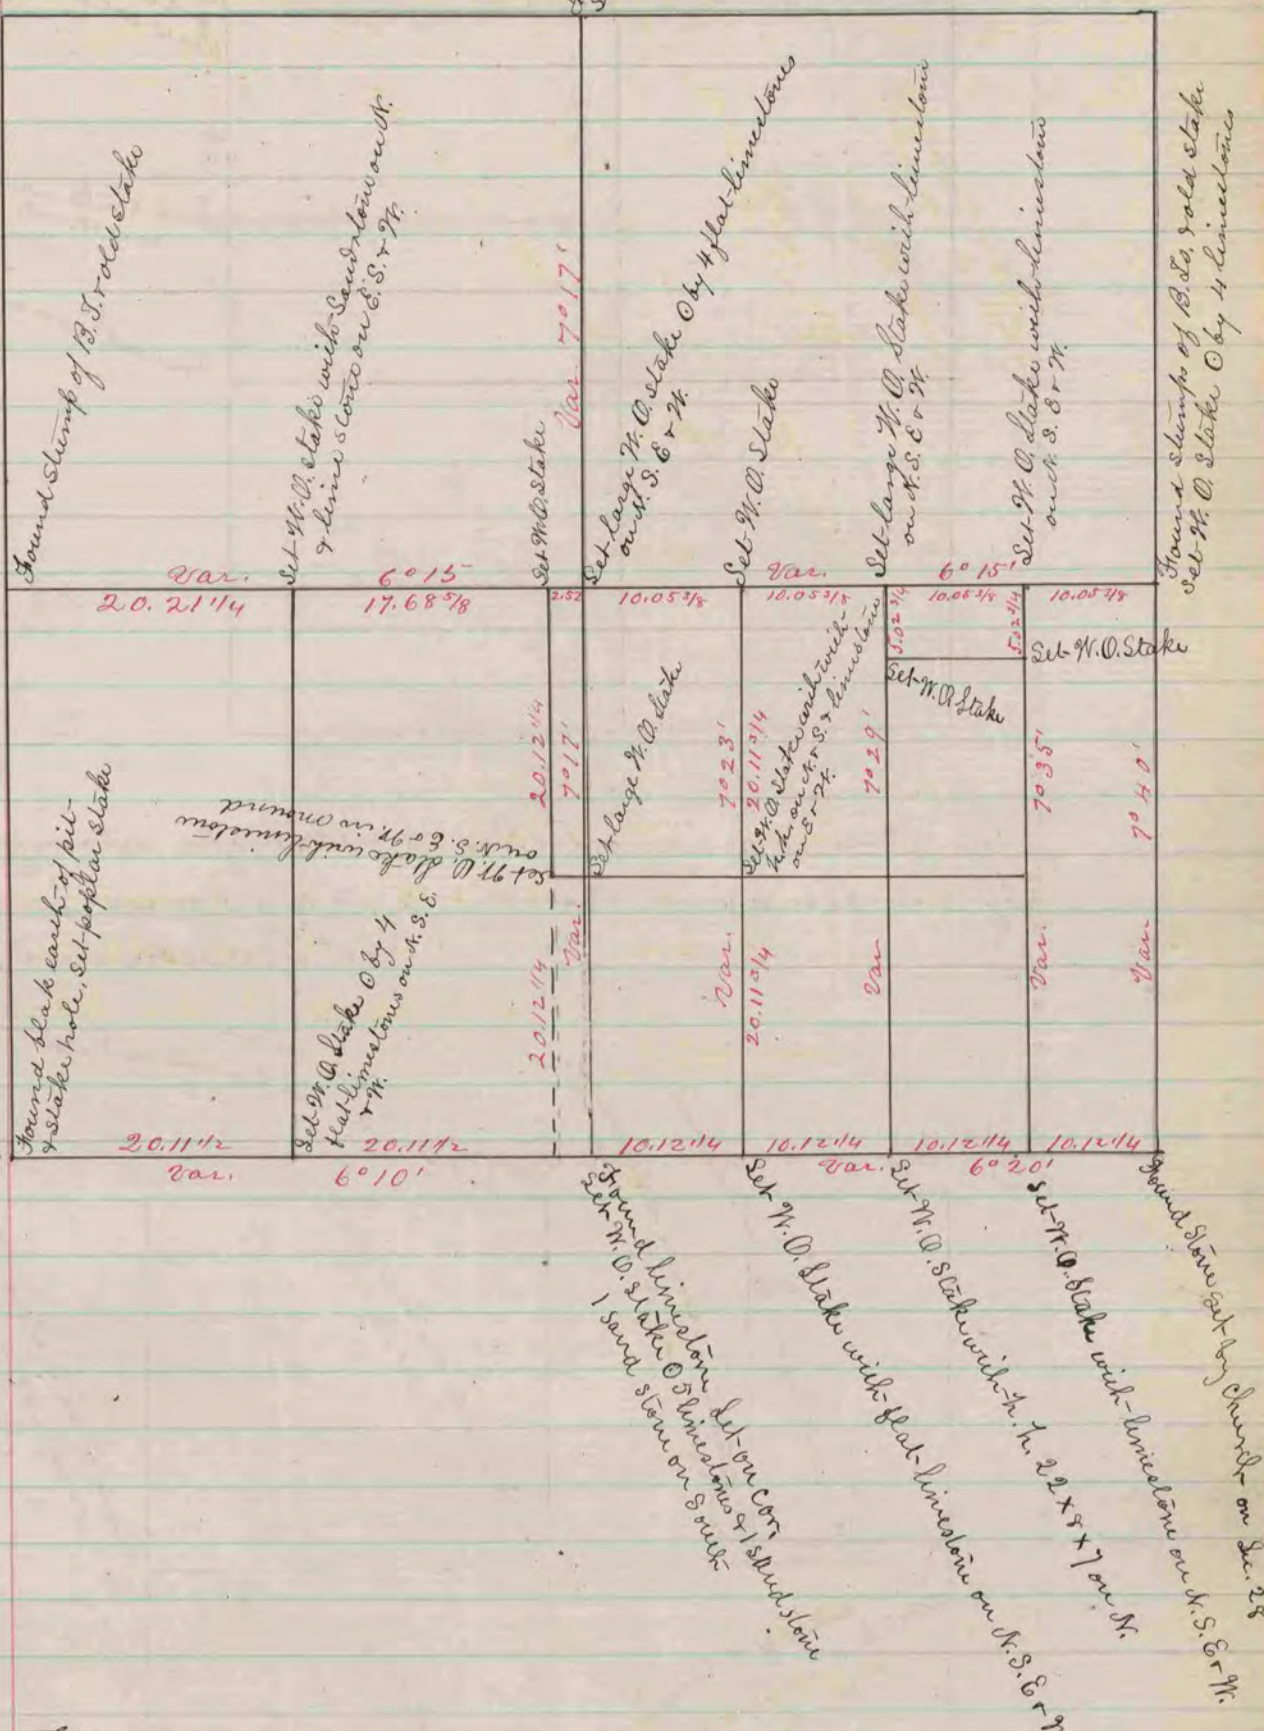 Found stump of B.T. & old stake
Set W.O. stake with Sandstone on N.
& limestone on E. S. & W.
Set W.O. Stake
Var. 7° 17'
Set large W.O. stake ⊙ by 4 flat limestones
on N. S. E & W.
Set W.O. Stake
Set large W.O. Stake with limestone
on N. S. E & W.
Set W.O. Stake with limestone
on N. S. E & W.
Found stumps of B.Ts. & old stake
Set W.O. Stake ⊙ by 4 limestones
Var. 6° 15
Var. 6° 15'
20.21 1/4
17.68 5/8
2.52
10.05 3/8
10.05 3/8
10.05 3/8
10.05 3/8
5.02 3/4
5.02 3/4
Set W.O. Stake
Set W.O. Stake
20.12 1/4
7° 17'
Set large W.O. Stake
7° 23'
20.11 3/4
Set W.O. Stake with
h.h. on N. & S. & limestone
on E & W.
7° 29'
7° 35'
7° 40'
Set W.O. Stake with limestone
on N. S. E & W. in mound
Found blak earth of pit
& stake hole, Set poplar stake
Set W.O. Stake ⊙ by 4
flat limestones on N. S. E.
& W.
20.12 1/4
Var.
Var.
20.11 3/4
Var
Var.
Var.
20.11 1/2
20.11 1/2
10.12 1/4
10.12 1/4
10.12 1/4
10.12 1/4
Var. 6° 10'
Var. 6° 20'
Found limestone Set on cor.
Set W.O. Stake ⊙ 5 limestones & 1 sandstone
1 sand stone on South
Set W.O. Stake with flat limestone on N. S. E &
Set W.O. Stake with h.h. 22 x 8 x 7 on N.
Set W.O. Stake with limestone on N. S. E & W.
Found Stone set by Church on Sec. 28